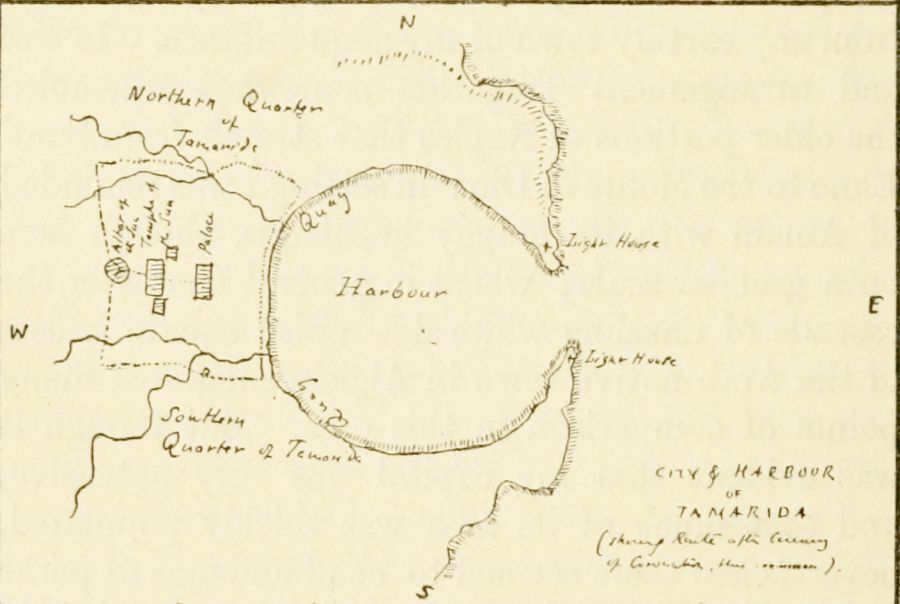 N
Northern Quarter
of
Tamaride
Altar of
the Sun
Temple of
the Sun
Palace
Quay
Light House
Harbour
E
W
Light House
Sands
Southern
Quarter of Tamaride
CITY & HARBOUR
OF
TAMARIDA
(showing Route after Ceremony
of Coronation, thus
S